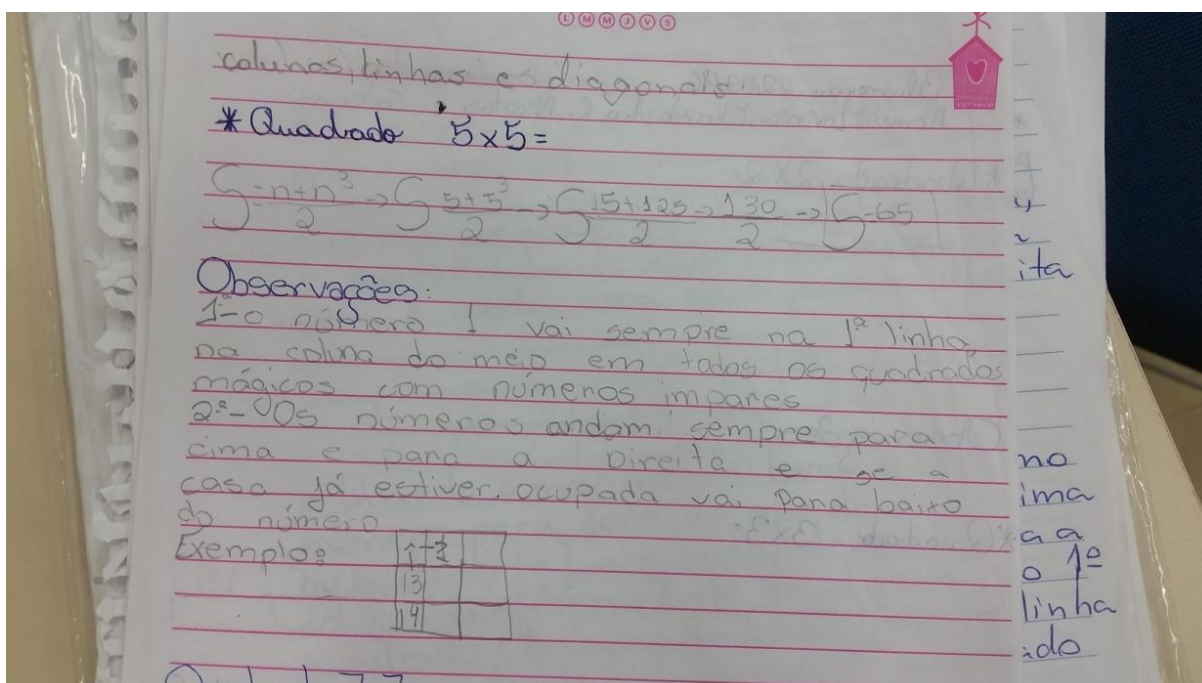 L M M J V S
colunas, linhas e diagonais
* Quadrado 5x5=
S=n+n³/2 -> S 5+5³/2 -> S 5+125/2 -> 130/2 -> S=65
Observações:
1ª-o número 1 vai sempre na 1ª linha,
na coluna do meio em todos os quadrados
mágicos com números impares
2ª- Os números andam sempre para
cima e para a Direita e se a
casa já estiver ocupada vai para baixo
do número
Exemplo:
13
14
ita
no
ima
a a
o 1º
linha
do